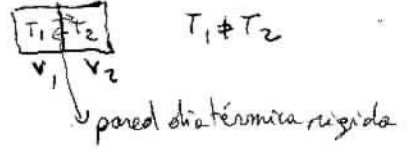 T₁ T₂ T₁ ≠ T₂
V₁ V₂
pared diatérmica rígida